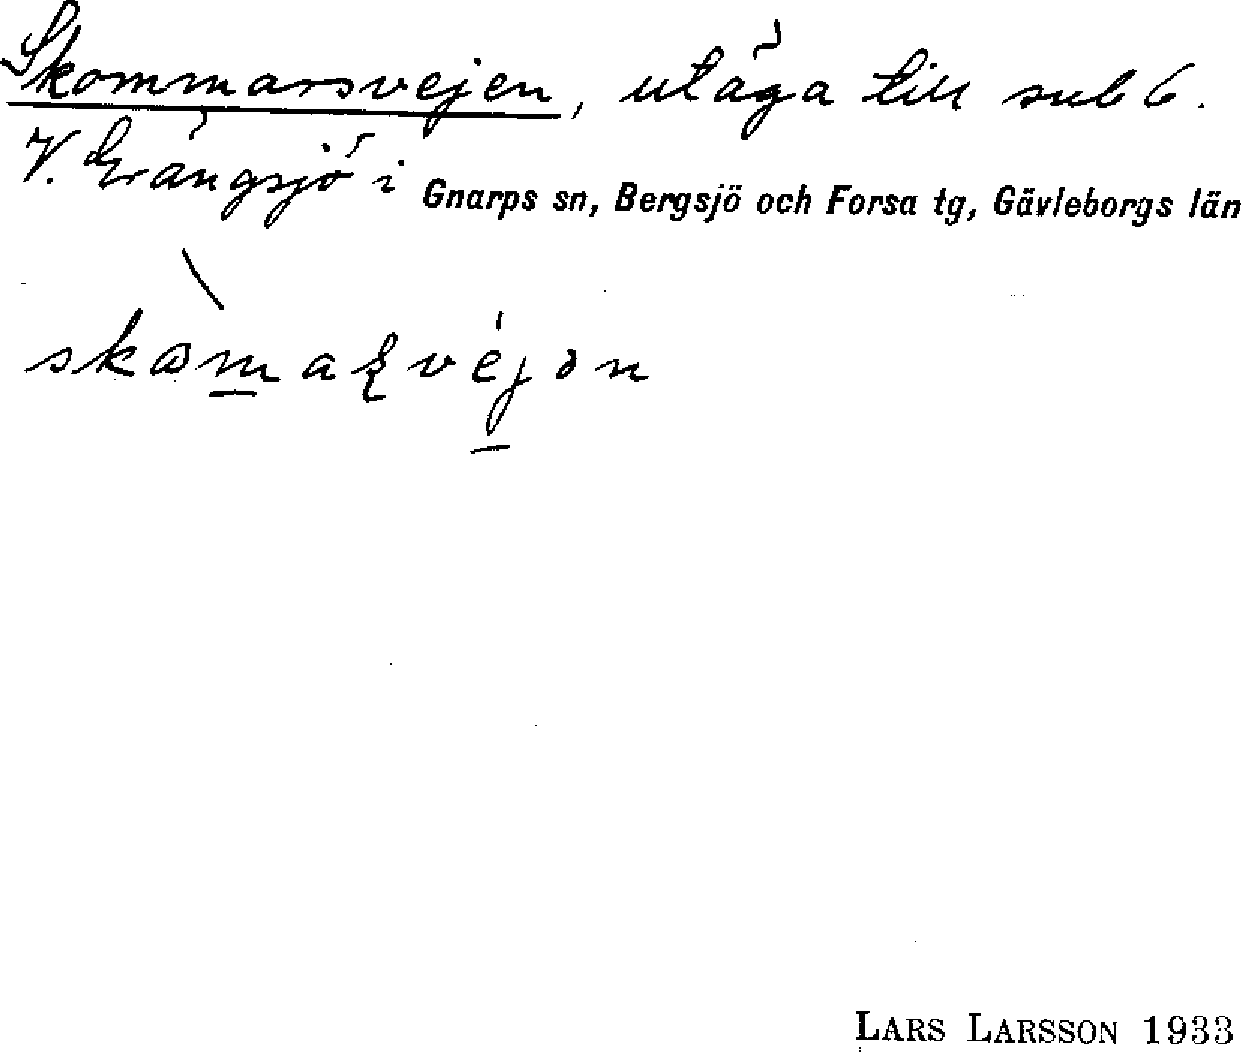 Skommarsvejen, utäga till sub 6.
V. Grängsjö i Gnarps sn, Bergsjö och Forsa tg, Gävleborgs län
LARS LARSSON 1933